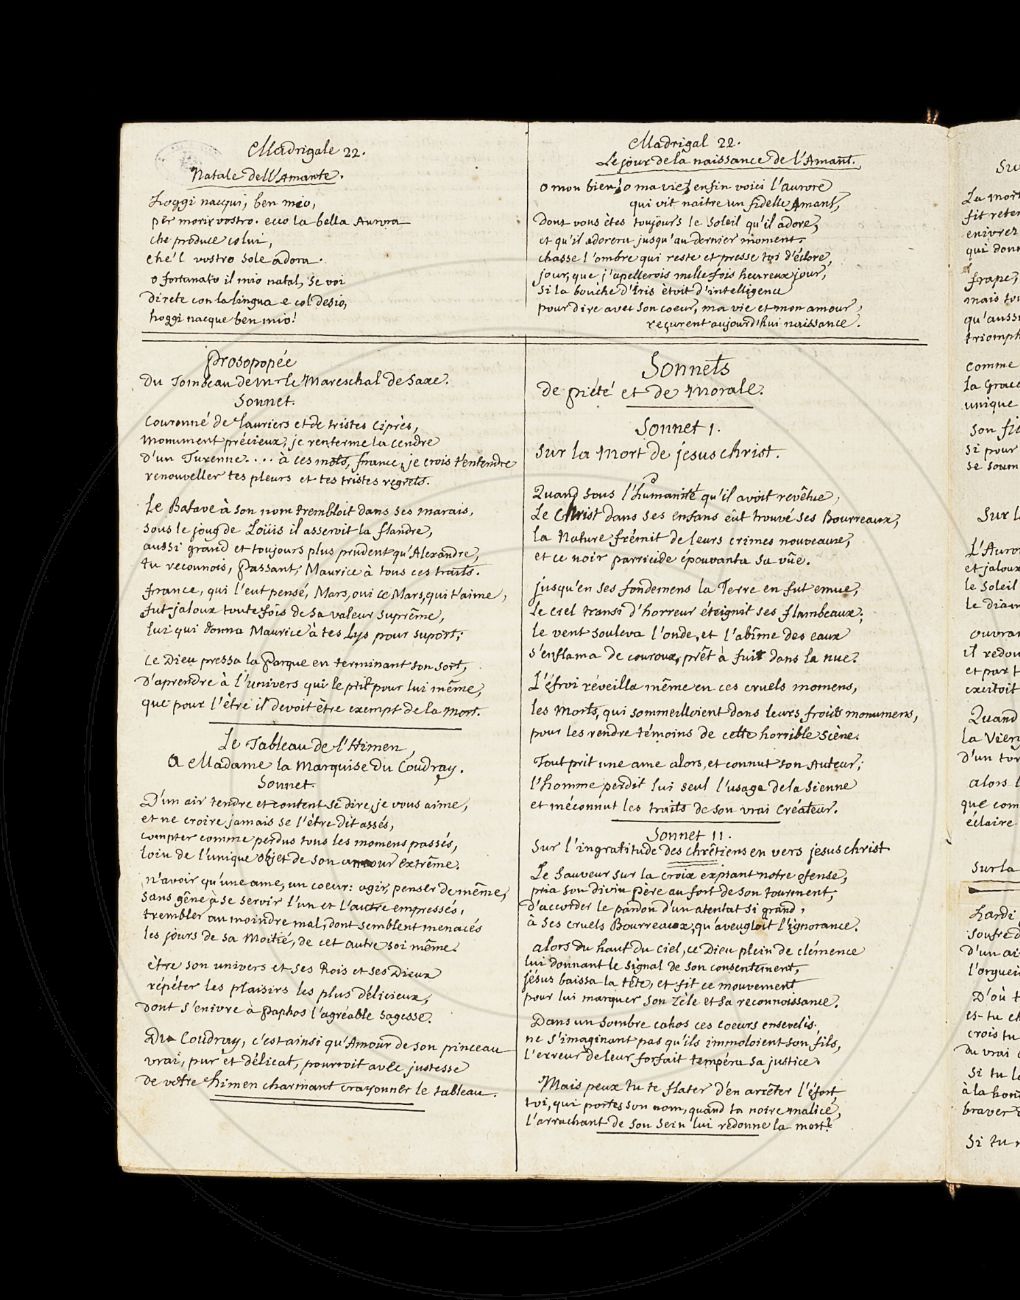 Madrigale 22.
Natale dell'Amante.
Hoggi nacqui, ben mio,
per morir vostro. ecco la bella Aurora
che produce colui,
che'l vostro sole adora.
o fortunato il mio natal, se voi
direte con la lingua e col desio,
hoggi nacque ben mio!
Madrigal 22.
Le jour de la naissance de l'Amant.
o mon bien, o ma vie, enfin voici l'aurore
qui vit naitre un fidelle Amant,
Dont vous êtes toujours le soleil qu'il adore,
et qu'il adorera jusqu'au dernier moment.
chasse l'ombre qui reste et presse toi d'éclore,
jour, que j'apellerois mille fois heureux jour,
si la bouche d'Iris étoit d'intelligence
pour dire avec son coeur, ma vie et mon amour,
reçurent aujourd'hui naissance.
Prosopopée
du Tombeau de Mr le Mareschal de Saxe.
Sonnet.
Couronné de Lauriers et de tristes Ciprès,
Monument précieux, je renferme la cendre
D'un Turenne.... à ces mots, france, je crois t'entendre
renouveller tes pleurs et tes tristes regrets.
Le Batave à son nom trembloit dans ses marais,
sous le joug de Loüis il asservit la flandre,
aussi grand et toujours plus prudent qu'Alexandre,
tu reconnois, Passant, Maurice à tous ces traits.
france, qui l'eut pensé, Mars, oui ce Mars, qui t'aime,
fut jaloux toute fois de sa valeur suprême,
lui qui donna Maurice à tes Lys pour suport;
Ce Dieu pressa la Parque en terminant son sort,
D'aprendre à l'univers qui le prit pour lui même,
que pour l'être il devoit être exempt de la mort.
Le Tableau de l'Himen,
A Madame la Marquise du Coudray.
Sonnet.
D'un air tendre et content se dire, je vous aime,
et ne croire jamais se l'être dit assés,
compter comme perdus tous les momens passés,
loin de l'unique objet de son amour extrême.
N'avoir qu'une ame, un coeur: agir, penser de même,
sans gêne à se servir l'un et l'autre empressés,
trembler au moindre mal, dont semblent menacés
les jours de sa Moitié, de cet autre soi même.
être son univers et ses Rois et ses Dieux
répéter les plaisirs les plus délicieux,
dont s'enivre à Paphos l'agréable sagesse.
Du Coudray, c'est ainsi qu'Amour de son pinceau
vrai, pur et délicat, pourroit avec justesse
de votre himen charmant crayonner le tableau.
Sonnets
de piété et de Morale.
Sonnet 1.
Sur la Mort de jesus christ.
Quand sous l'humanité qu'il avoit revêtue,
Le Christ dans ses enfans eût trouvé ses Bourreaux,
la Nature frémit de leurs crimes nouveaux,
et ce noir parricide épouvanta sa vüe.
jusqu'en ses fondemens la Terre en fut emue,
le ciel transi d'horreur éteignit ses flambeaux;
le vent souleva l'onde, et l'abîme des eaux
s'enflama de couroux, prêt à fuir dans la nue.
L'éfroi réveilla même en ces cruels momens,
les Morts, qui sommeilloient dans leurs froids monumens,
pour les rendre témoins de cette horrible scène.
Tout prit une ame alors, et connut son Auteur;
l'homme perdit lui seul l'usage de la sienne
et méconnut les traits de son vrai Createur.
Sonnet 11.
Sur l'ingratitude des chrêtiens en vers jesus christ
Le Sauveur sur la croix expiant notre ofense,
pria son divin Père au fort de son tourment,
d'accorder le pardon d'un atentat si grand,
à ses cruels Bourreaux, qu'aveugloit l'ignorance.
alors du haut du Ciel, ce Dieu plein de clémence
lui donnant le signal de son consentement,
jésus baissa la tête, et fit ce mouvement
pour lui marquer son zèle et sa reconnoissance.
Dans un sombre cahos ces coeurs ensevelis,
ne s'imaginant pas qu'ils immoloient son fils,
l'erreur de leur forfait tempéra sa justice.
Mais peux tu te flater d'en arrêter l'éfort,
toi, qui portes son nom, quand ta noire malice,
l'arrachant de son sein lui redonne la mort?